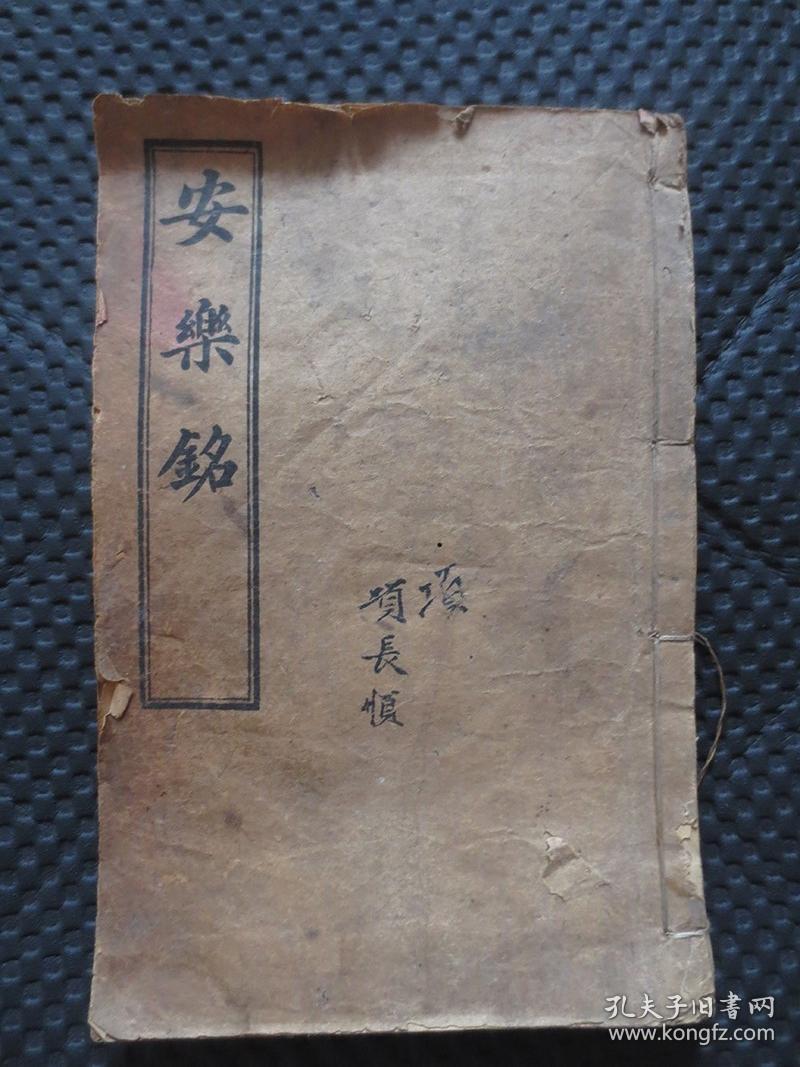 安樂銘
項
項長順
孔夫子旧書网
www.kongfz.com